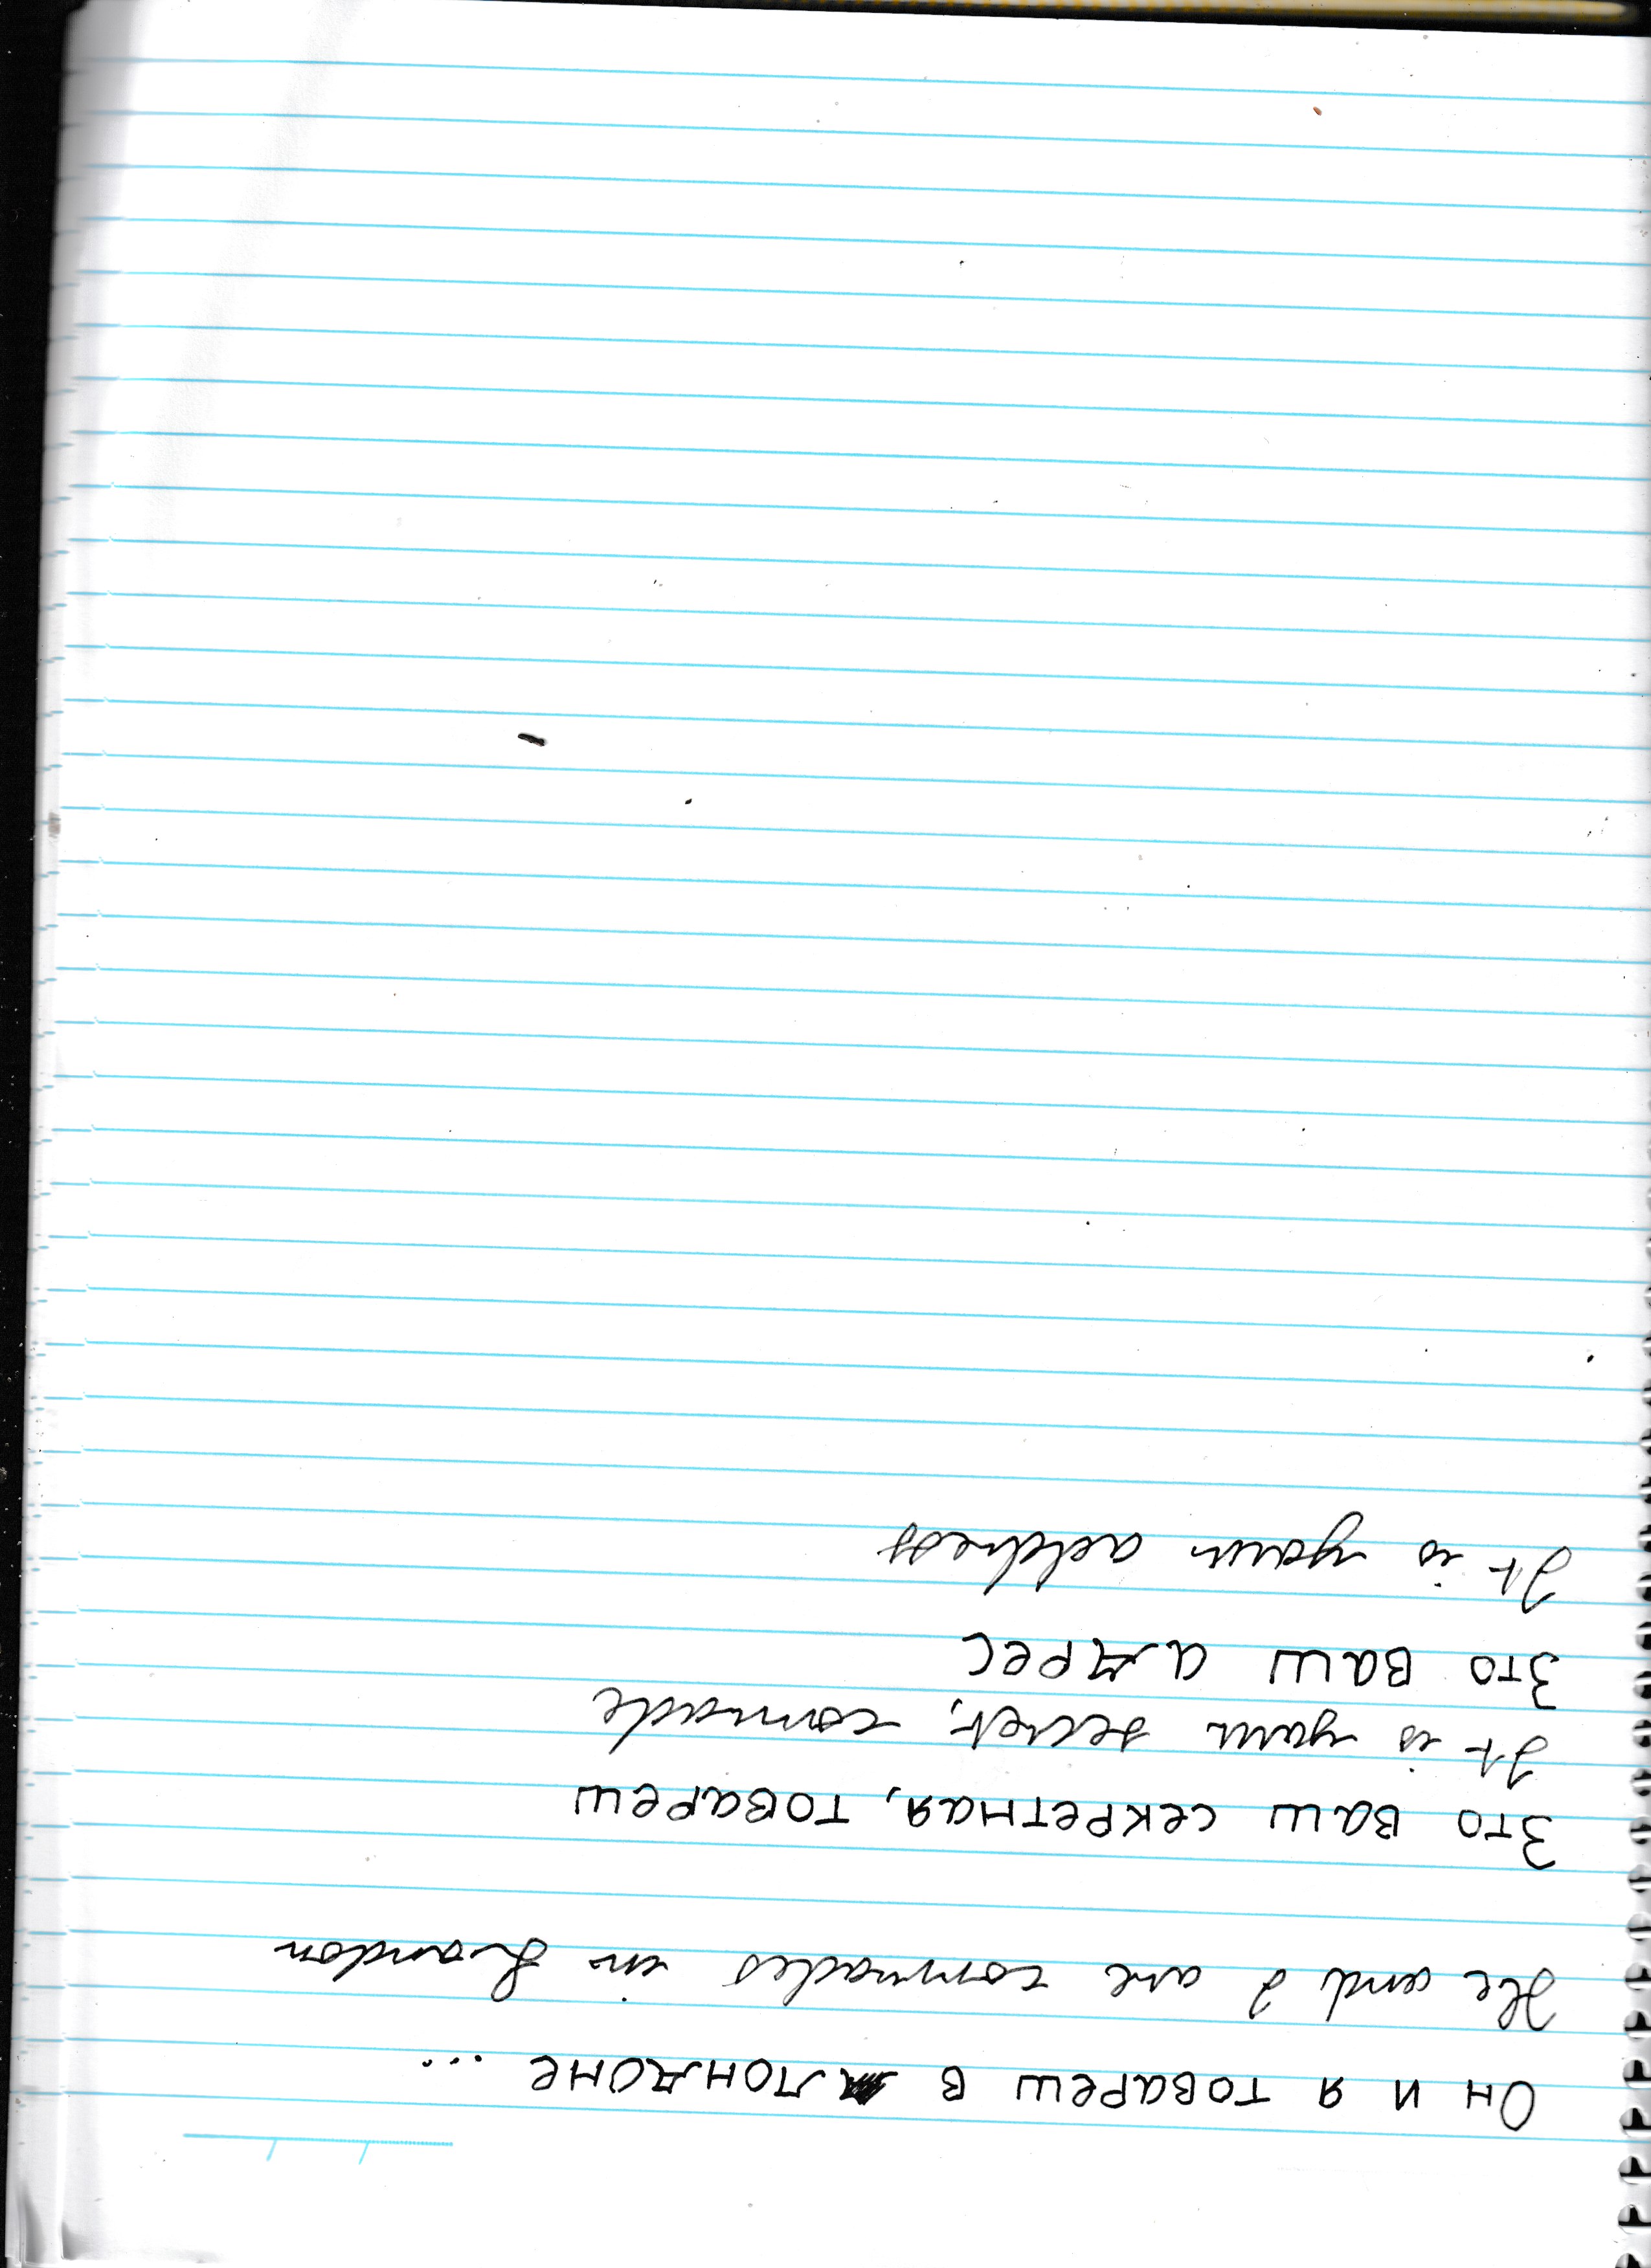 Он и я товареш в лондоне ...
He and I are comrades in London
Зто ваш секретная, товареш
It is your secret, comrade
Зто ваш адрес
It is your address